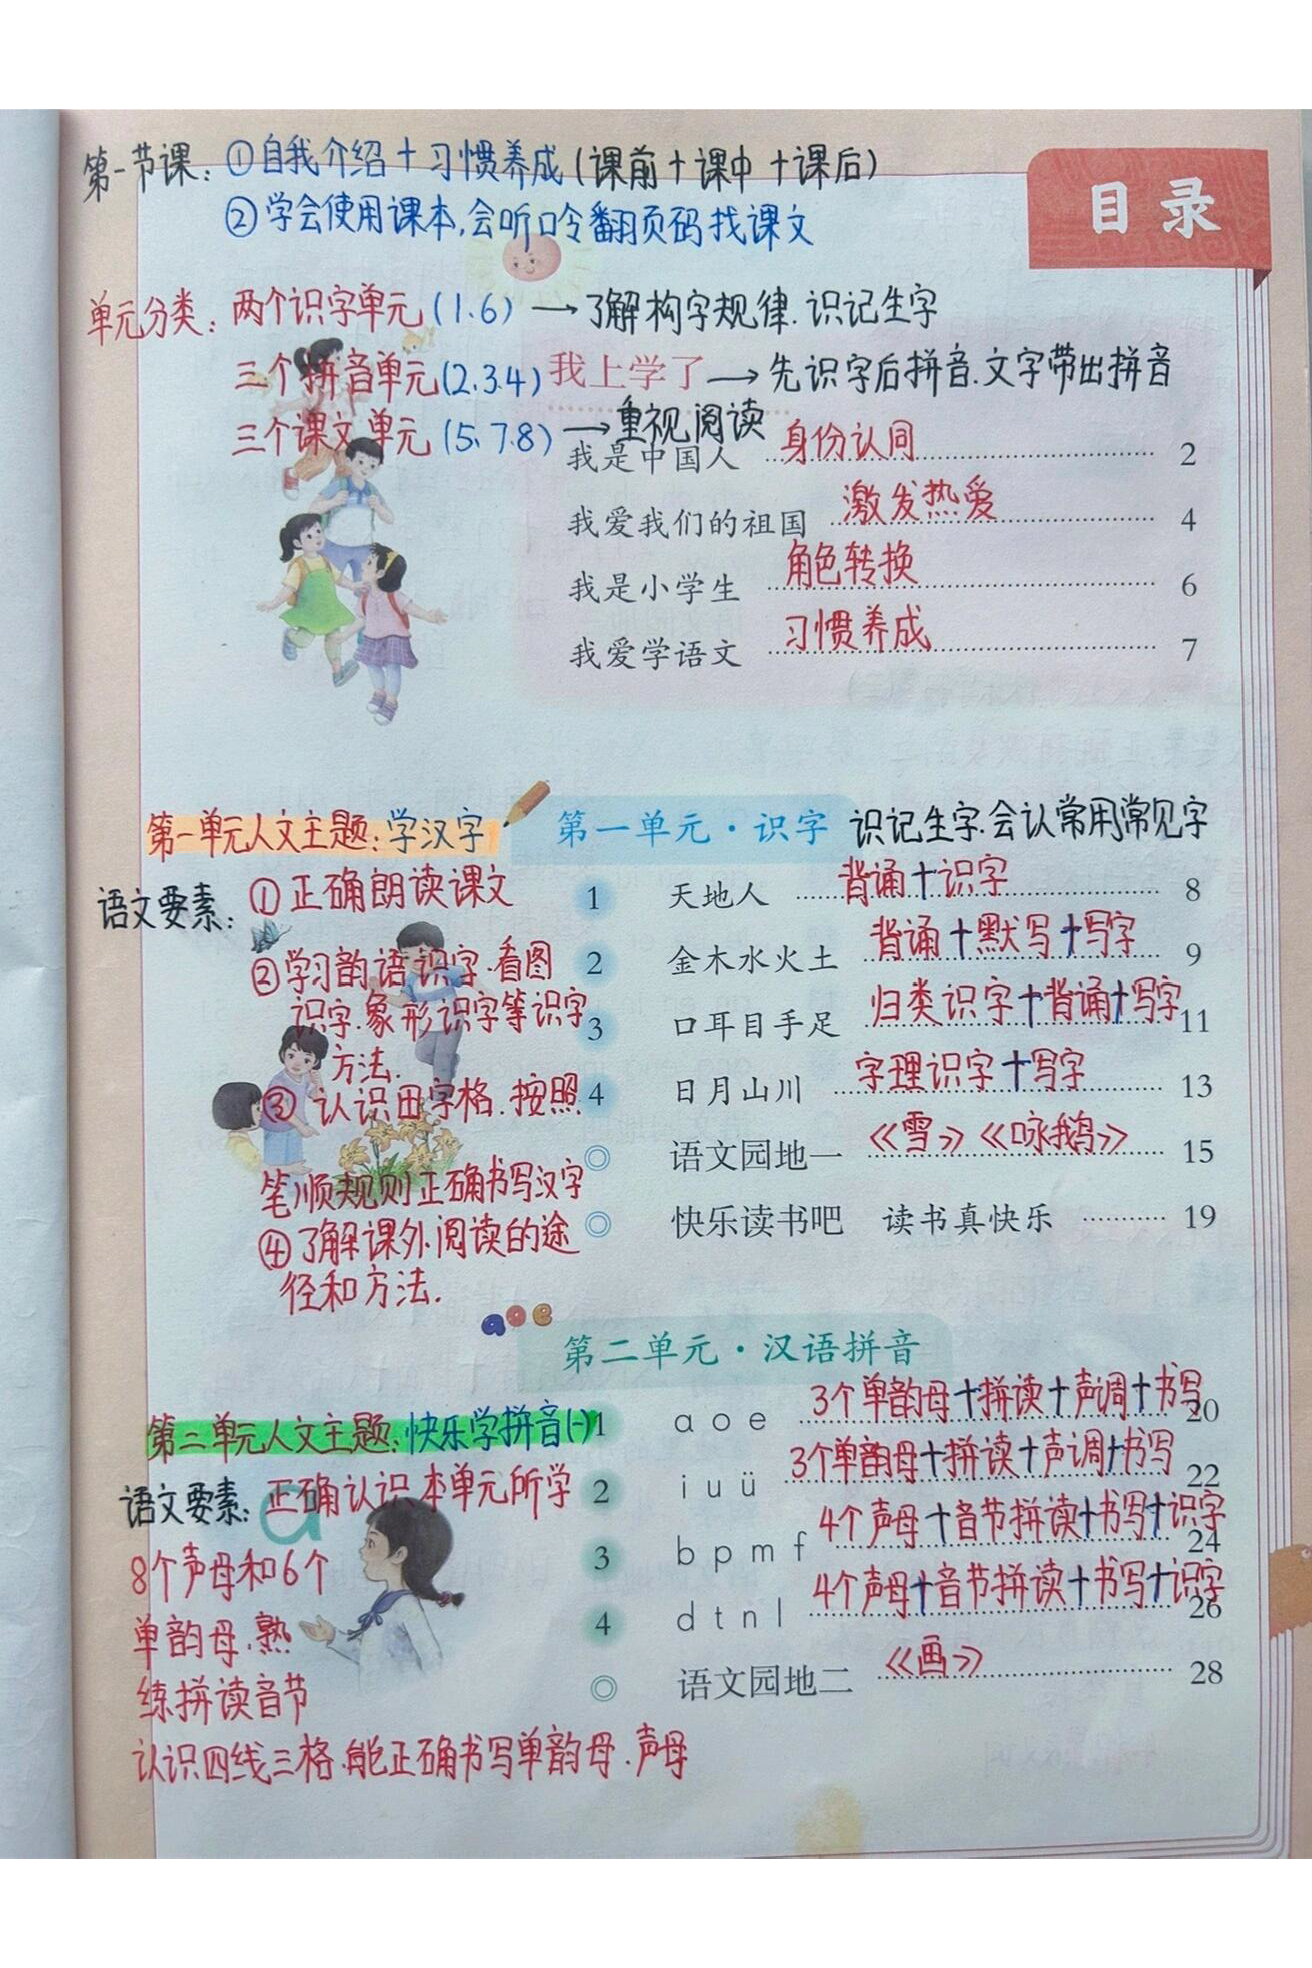 第一节课：①自我介绍+习惯养成（课前+课中+课后）
②学会使用课本,会听口令翻页码找课文
目录
单元分类：两个识字单元(1.6)→了解构字规律.识记生字
三个拼音单元(2.3.4) 我上学了→先识字后拼音.文字带出拼音
三个课文单元(5、7.8)→重视阅读
我是中国人 身份认同 2
我爱我们的祖国 激发热爱 4
我是小学生 角色转换 6
我爱学语文 习惯养成 7
第一单元人文主题：学汉字
第一单元·识字 识记生字.会认常用常见字
语文要素：①正确朗读课文
②学习韵语识字.看图
识字.象形识字等识字
方法.
③认识田字格.按照
笔顺规则正确书写汉字
④了解课外阅读的途
径和方法.
1 天地人 背诵+识字 8
2 金木水火土 背诵+默写+写字 9
3 口耳目手足 归类识字+背诵+写字 11
4 日月山川 字理识字+写字 13
◎ 语文园地一 《雪》《咏鹅》 15
◎ 快乐读书吧 读书真快乐 19
aoe
第二单元·汉语拼音
第二单元人文主题：快乐学拼音(一)
语文要素：正确认识本单元所学
8个声母和6个
单韵母.熟
练拼读音节
认识四线三格.能正确书写单韵母.声母
1 ɑ o e 3个单韵母+拼读+声调+书写 20
2 i u ü 3个单韵母+拼读+声调+书写 22
3 b p m f 4个声母+音节拼读+书写+识字 24
4 d t n l 4个声母+音节拼读+书写+识字 26
◎ 语文园地二 《画》 28